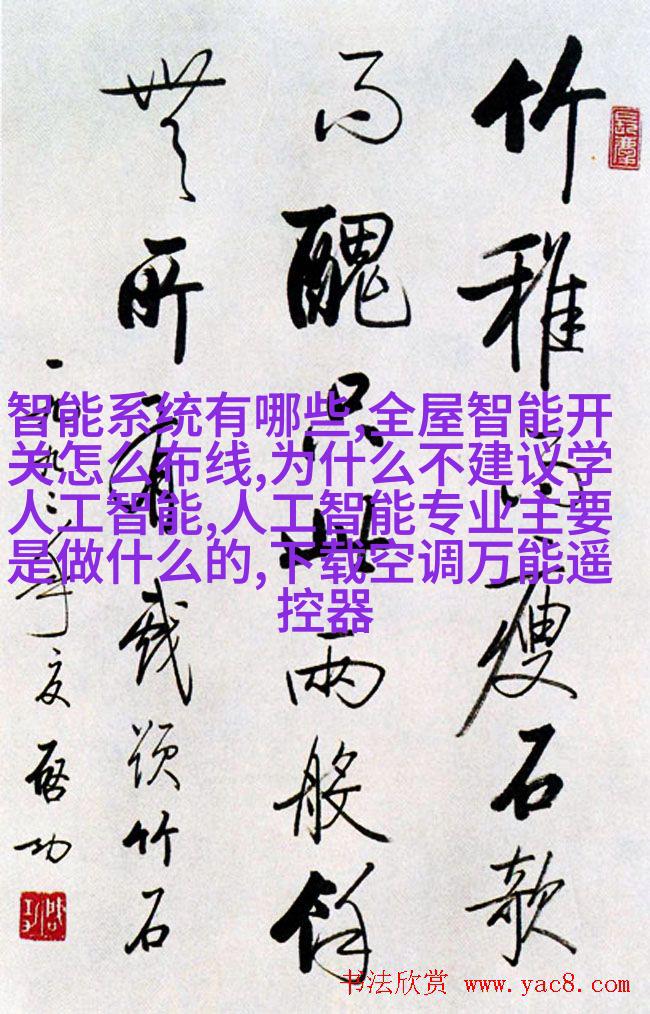 竹稚而瘦石欹
而醜只此兩般餘
無所有戲頌竹石
一九九二年夏 啓功
智能系统有哪些,全屋智能开
关怎么布线,为什么不建议学
人工智能,人工智能专业主要
是做什么的,下载空调万能遥
控器
书法欣赏 www.yac8.com